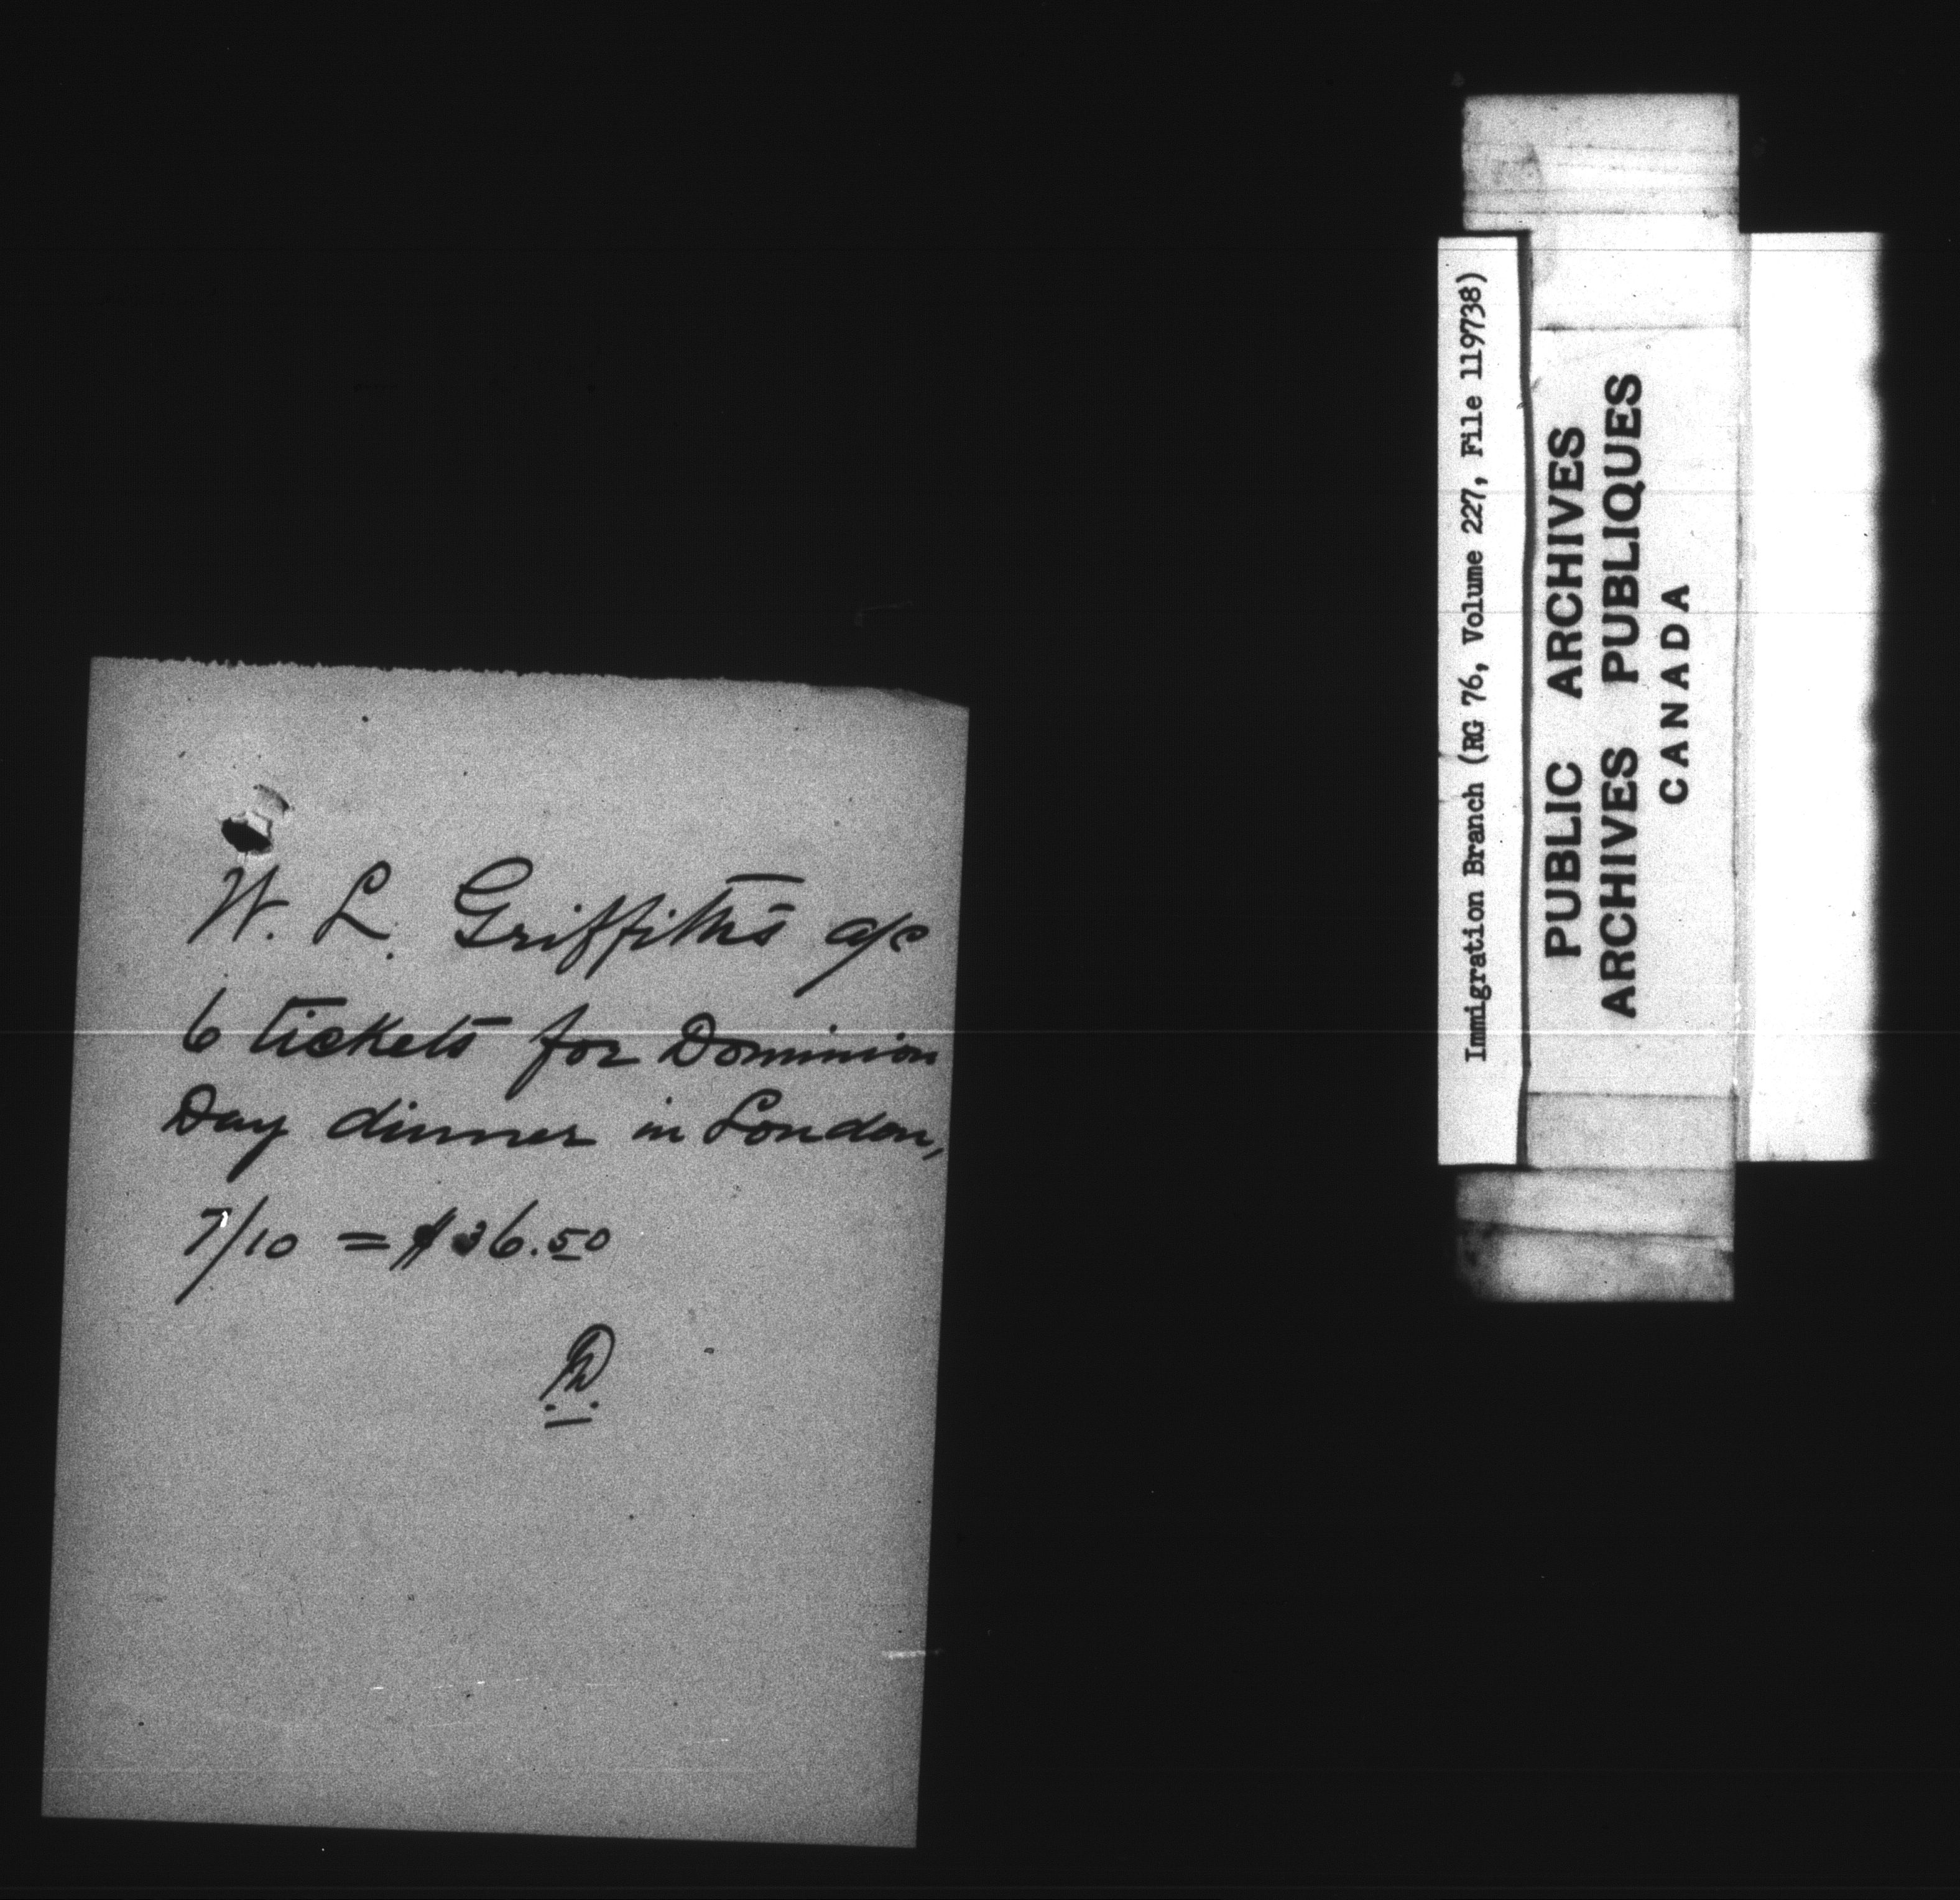 W. L. Griffith's a/c
6 tickets for Dominion
Day dinner in London,
7/10 = $36.50
Immigration Branch (RG 76, Volume 227, File 119738)
PUBLIC ARCHIVES
ARCHIVES PUBLIQUES
CANADA